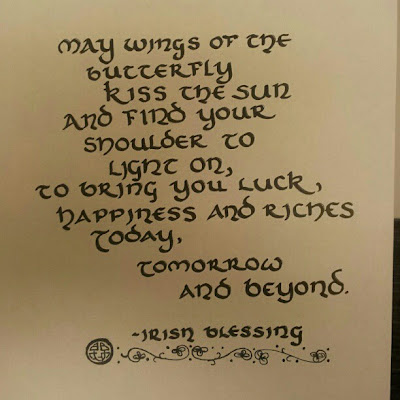 May wings of the
butterfly
kiss the sun
and find your
shoulder to
light on,
to bring you luck,
happiness and riches
today,
tomorrow
and beyond.
-Irish Blessing